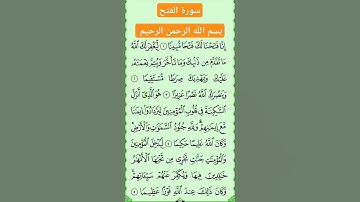 سورة الفتح
بسم الله الرحمن الرحيم
إِنَّا فَتَحْنَا لَكَ فَتْحًا مُّبِينًا ١ لِّيَغْفِرَ لَكَ ٱللَّهُ
مَا تَقَدَّمَ مِن ذَنۢبِكَ وَمَا تَأَخَّرَ وَيُتِمَّ نِعْمَتَهُۥ
عَلَيْكَ وَيَهْدِيَكَ صِرَٰطًا مُّسْتَقِيمًا ٢
وَيَنصُرَكَ ٱللَّهُ نَصْرًا عَزِيزًا ٣ هُوَ ٱلَّذِىٓ أَنزَلَ
ٱلسَّكِينَةَ فِى قُلُوبِ ٱلْمُؤْمِنِينَ لِيَزْدَادُوٓا۟ إِيمَٰنًا
مَّعَ إِيمَٰنِهِمْ وَلِلَّهِ جُنُودُ ٱلسَّمَٰوَٰتِ وَٱلْأَرْضِ
وَكَانَ ٱللَّهُ عَلِيمًا حَكِيمًا ٤ لِّيُدْخِلَ ٱلْمُؤْمِنِينَ
وَٱلْمُؤْمِنَٰتِ جَنَّٰتٍ تَجْرِى مِن تَحْتِهَا ٱلْأَنْهَٰرُ
خَٰلِدِينَ فِيهَا وَيُكَفِّرَ عَنْهُمْ سَيِّـَٔاتِهِمْ
وَكَانَ ذَٰلِكَ عِندَ ٱللَّهِ فَوْزًا عَظِيمًا ٥